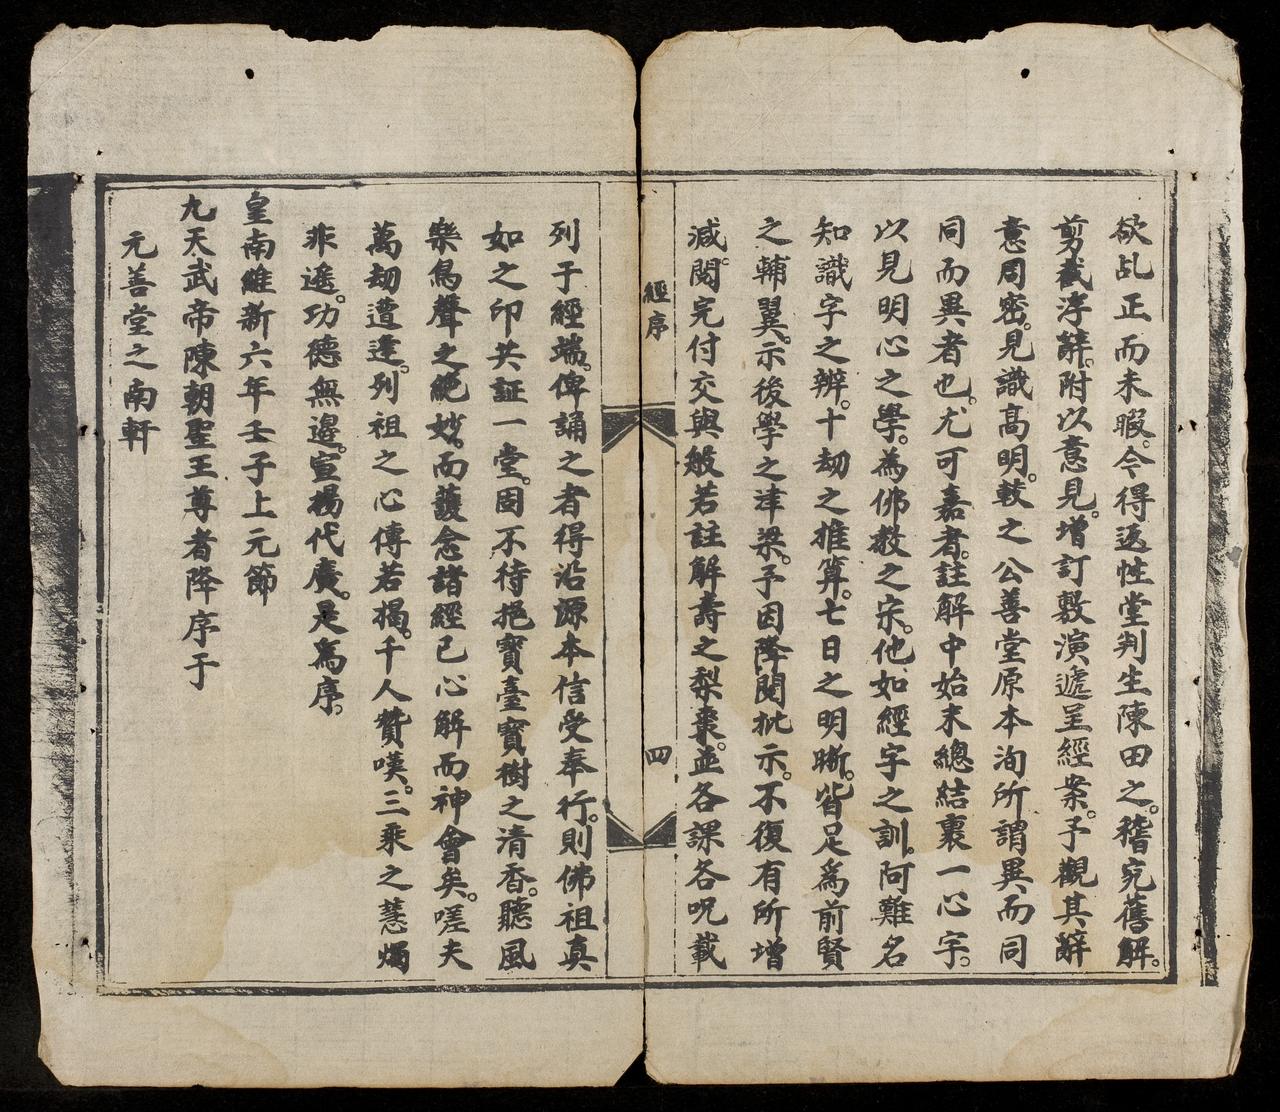 欲乩正而未暇。今得返性堂判生陳田之。稽究舊解。
剪裁浮辭。附以意見。增訂敷演遞呈經案。予觀其辭
意周密。見識高明。較之公善堂原本洵所謂異而同
同而異者也。尤可嘉者。註解中始末總結裹一心字。
以見明心之學。為佛教之宗。他如經字之訓。阿難名
知識字之辨。十劫之推算。七日之明晰。皆足為前賢
之輔翼。示後學之津梁。予因降閱批示。不復有所增
減。閱完付交與般若註解壽之梨棗。並各課各呪載
經序
四
列于經端。俾誦之者得沿源本信受奉行。則佛祖真
如之印共証一堂。固不待挹寶臺寶樹之清香。聽風
樂鳥聲之絕妙。而護念諸經已心解而神會矣。嗟夫
萬劫遭逢。列祖之心傳若揭。千人贊嘆。三乘之慧燭
非遙。功德無邊。宣揚代廣。是為序。
皇南維新六年壬子上元節
九天武帝陳朝聖王尊者降序于
元善堂之南軒